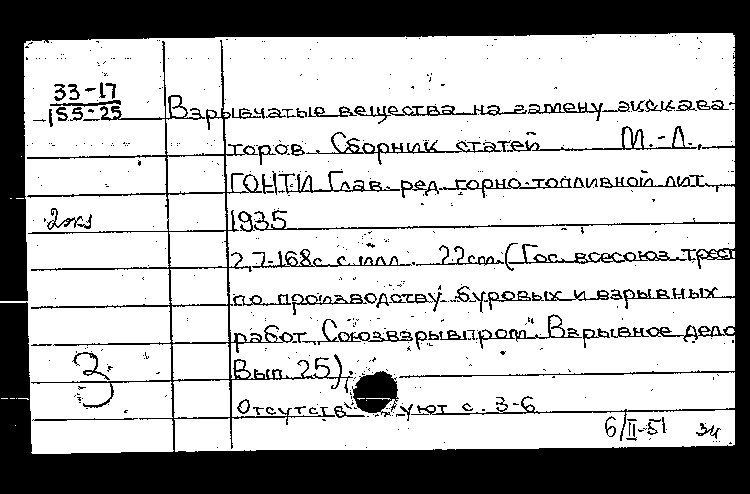 33-17
155-25
Взрывчатые вещества на замену экскава-
торов. Сборник статей. М.-Л.,
ГОНТИ Глав. ред. горно-топливной лит.,
2экз 1935
2,7-168с. с илл. 22см. (Гос. всесоюз. трест
по производству буровых и взрывных
работ "Союзвзрывпром". Взрывное дело
Вып. 25).
З
Отсутствуют с. 3-6
6/II-51 зи